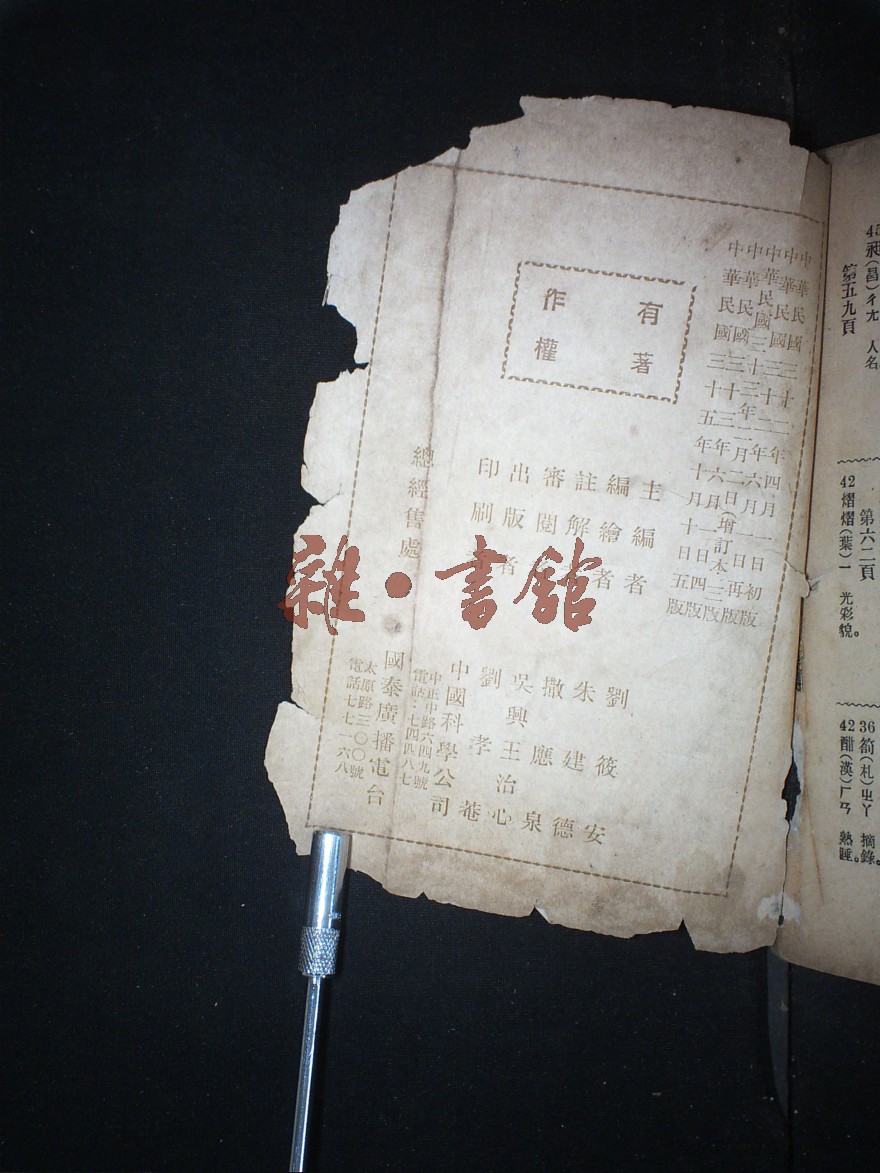 中華民國三十二年四月一日初版
中華民國三十二年六月一日再版
中華民國三十三年二月二日(增訂本)三版
中華民國三十三年六月一日四版
中華民國三十五年十月十日五版
有著
作權
主編者 劉筱安
編繪者 朱建德
註解者 撒應泉
審閱者 吳興王治心
出版者 劉孝菴
印刷者 中國科學公司
中正中路六四九號
電話:七四四八七
總經售處 國泰廣播電台
太原路三〇〇號
電話七七一六八
雜·書館
45 昶(昌)ㄔㄤ 人名
第五九頁
第六二頁
42 熠熠(葉)ㄧ 光彩貌。
36 箚(札)ㄓㄚ 摘錄。
42 酣(漢)ㄏㄢ 熟睡。